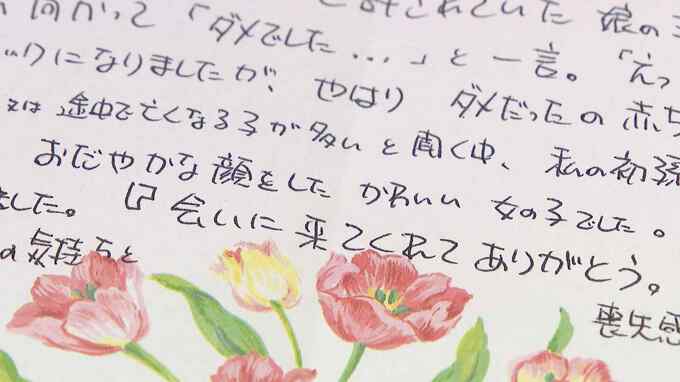 向かって「ダメでした...」と一言。「えっ
になりましたが、やはり ダメだったの 赤ち
又は 途中で亡くなる子が多いと聞く中、私の初孫
おだやかな顔をした かわいい 女の子でした。
ました。『会いに来てくれて ありがとう。
の気持ちと
喪失感